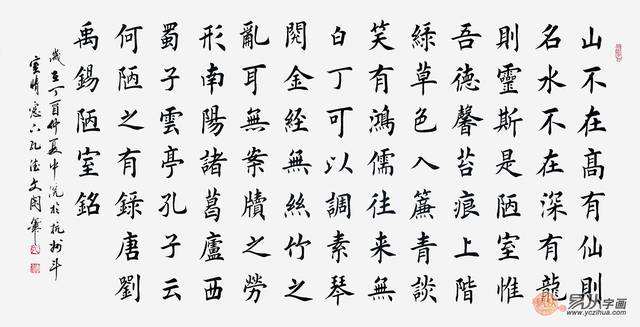 山不在高有仙則
名水不在深有龍
則靈斯是陋室惟
吾德馨苔痕上階
綠草色入簾青談
笑有鴻儒往来無
白丁可以調素琴
閱金經無絲竹之
亂耳無案牘之勞
形南陽諸葛廬西
蜀子雲亭孔子云
何陋之有錄唐劉
禹錫陋室銘
歲在丁酉仲夏中浣於杭州斗
室晴窗
易从字画
www.yczihua.com